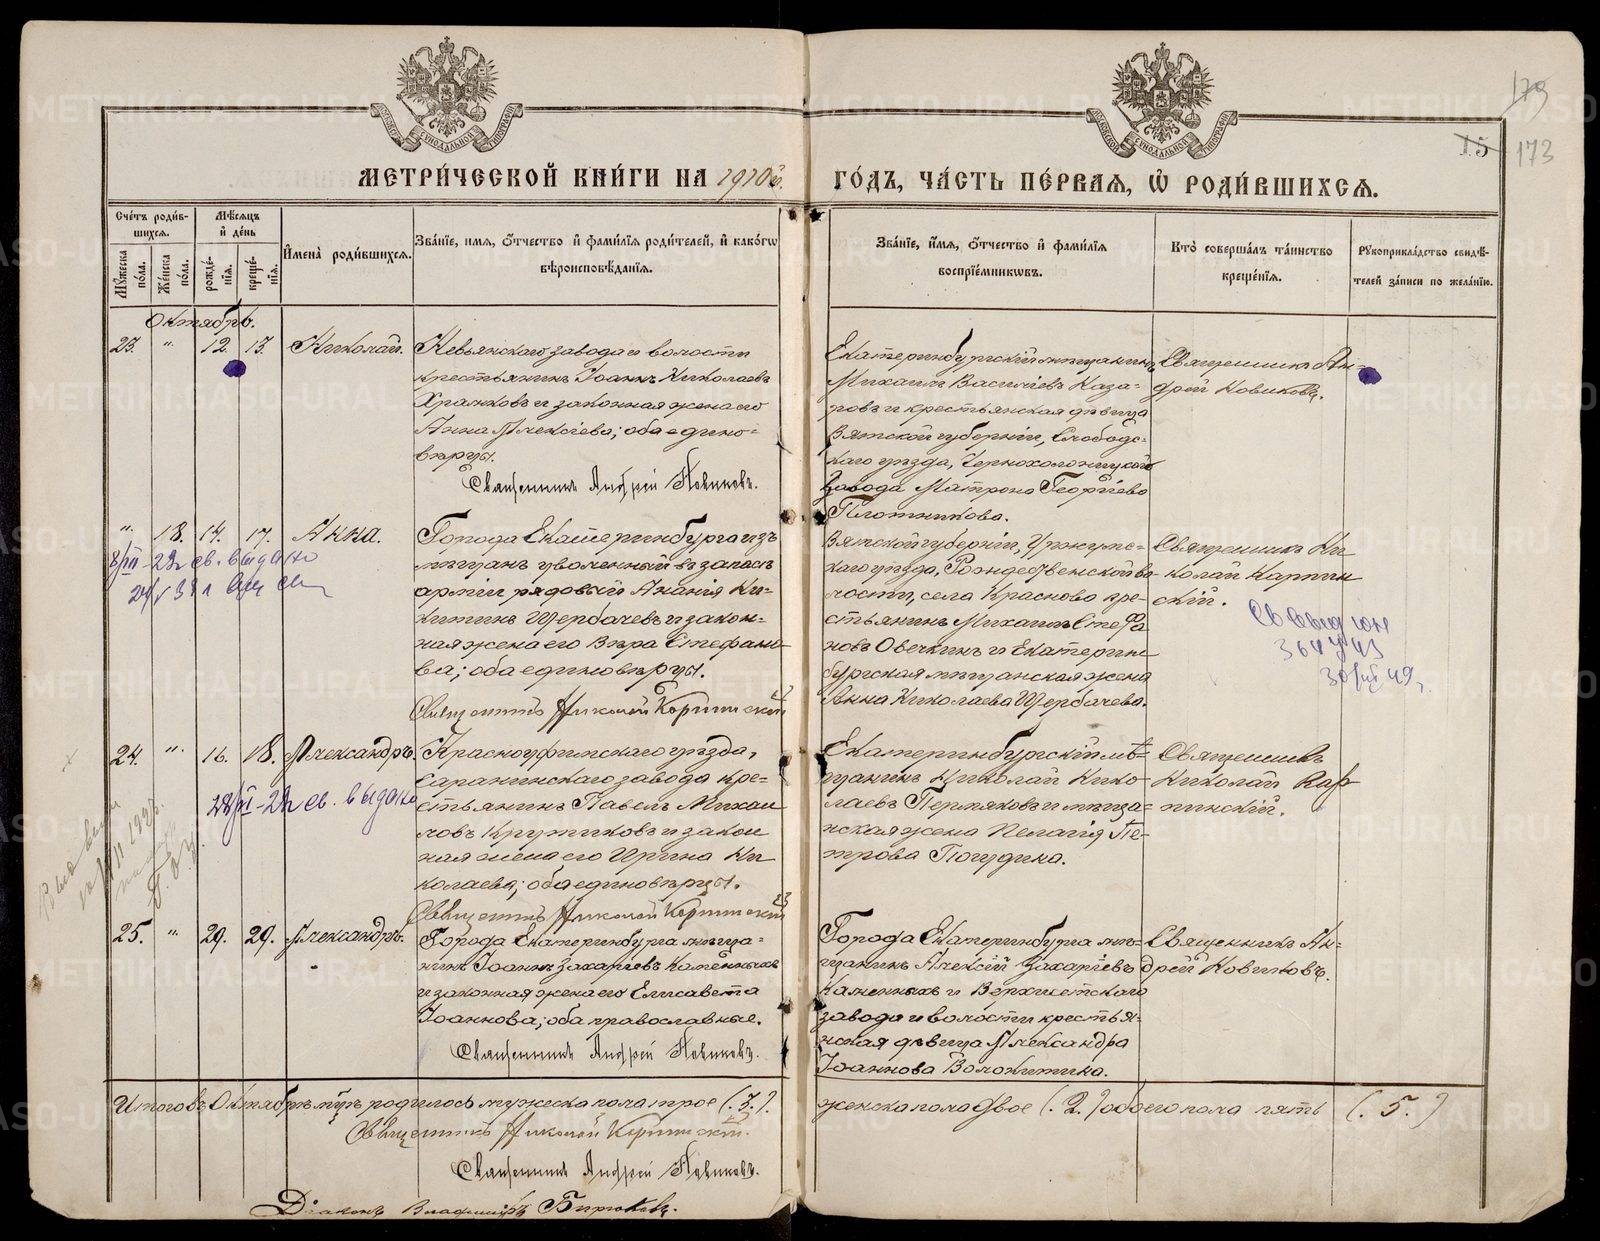 179
15
173
МЕТРИ́ЧЕСКОЙ КНИ́ГИ НА 1910й
ГО́ДЪ, ЧА́СТЬ ПЕ́РВАѦ, Ѿ РОДИ́ВШИХСѦ.
Сче́тъ роди́в-
шихсѧ.
Мѣ́сѧцъ
и҆ де́нь
Мꙋ́жеска по́ла.
Же́нска по́ла.
рожде́-
нїѧ.
креще́-
нїѧ.
И҆мена̀ роди́вшихсѧ.
Зва́нїе, и҆мѧ, ѻ҆́тчество и҆ фами́лїѧ роди́телей, и҆ како́гѡ
вѣроисповѣ́данїѧ.
Зва́нїе, и҆́мѧ, ѻ҆́тчество и҆ фами́лїѧ
воспрїе́мникѡвъ.
Кто̀ соверша́лъ та́инство
креще́нїѧ.
Рꙋкоприкла́дство свидѣ́-
телей за́писи по жела́нїю.
Октябрь.
23. " 12. 13. Николай.
Невьянскаго завода и волости
крестьянинъ Іоаннъ Николаевъ
Храмковъ и законная жена его
Анна Алексіева; оба едино-
вѣрцы.
Священникъ Андрей Новиковъ.
Екатеринбургскій мѣщанинъ
Михаилъ Василіевъ Каза-
ровъ и крестьянская дѣвица
Вятской губерніи, Слободс-
каго уѣзда, Чернохолоницкаго
завода Матрона Георгіева
Плотникова.
Священникъ Ан-
дрей Новиковъ.
" 18. 14. 17. Анна.
св. выдано
Города Екатеринбурга изъ
мѣщанъ уволенный въ запасъ
арміи рядовый Ананія Ни-
китинъ Щербачевъ и закон-
ная жена его Вѣра Стефано-
ва; оба единовѣрцы.
Священникъ Николай Карпинскій
Вятской губерніи, Уржумс-
каго уѣзда, Рождественской во-
лости, села Красново кре-
стьянинъ Михаилъ Стефа
новъ Овечкинъ и Екатерин
бургская мѣщанская жена
Анна Николаева Щербачева.
Священникъ Ни
колай Карпин
скій.
30/VII 49
24. " 16. 18. Александръ.
св. выдано
Красноуфимскаго уѣзда,
Саранинскаго завода кре-
стьянинъ Павелъ Михаи
ловъ Кружиковъ и закон
ная жена его Ирина Ни
колаева; оба единовѣрцы.
Священникъ Николай Карпинскій
Екатеринбургскій мѣ-
щанинъ Николай Нико
лаевъ Пермяковъ и мѣща-
нская жена Пелагія Пе-
трова Погудина.
Священникъ
Николай Кар
пинскій.
25. " 29. 29. Александръ.
Города Екатеринбурга мѣща-
нинъ Іоаннъ Захаріевъ Каменныхъ
и законная жена его Елисавета
Іоаннова; оба православные.
Священникъ Андрей Новиковъ.
Города Екатеринбурга мѣ-
щанинъ Алексій Захаріевъ
Каменныхъ и Верхисетскаго
завода и волости крестья-
нская дѣвица Александра
Іоаннова Волокитина.
Священникъ Ан-
дрей Новиковъ.
Итого въ Октябрѣ мцѣ родилось мужеска пола трое (.3.).
женска пола двое (.2.) обоего пола пять (.5.)
Священникъ Николай Карпинскій.
Священникъ Андрей Новиковъ.
Діаконъ Владиміръ Бирюковъ.